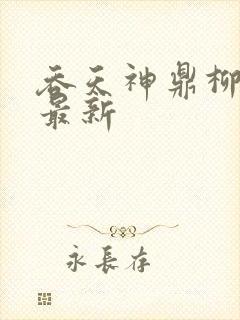 吞天神鼎柳
最新
永長存